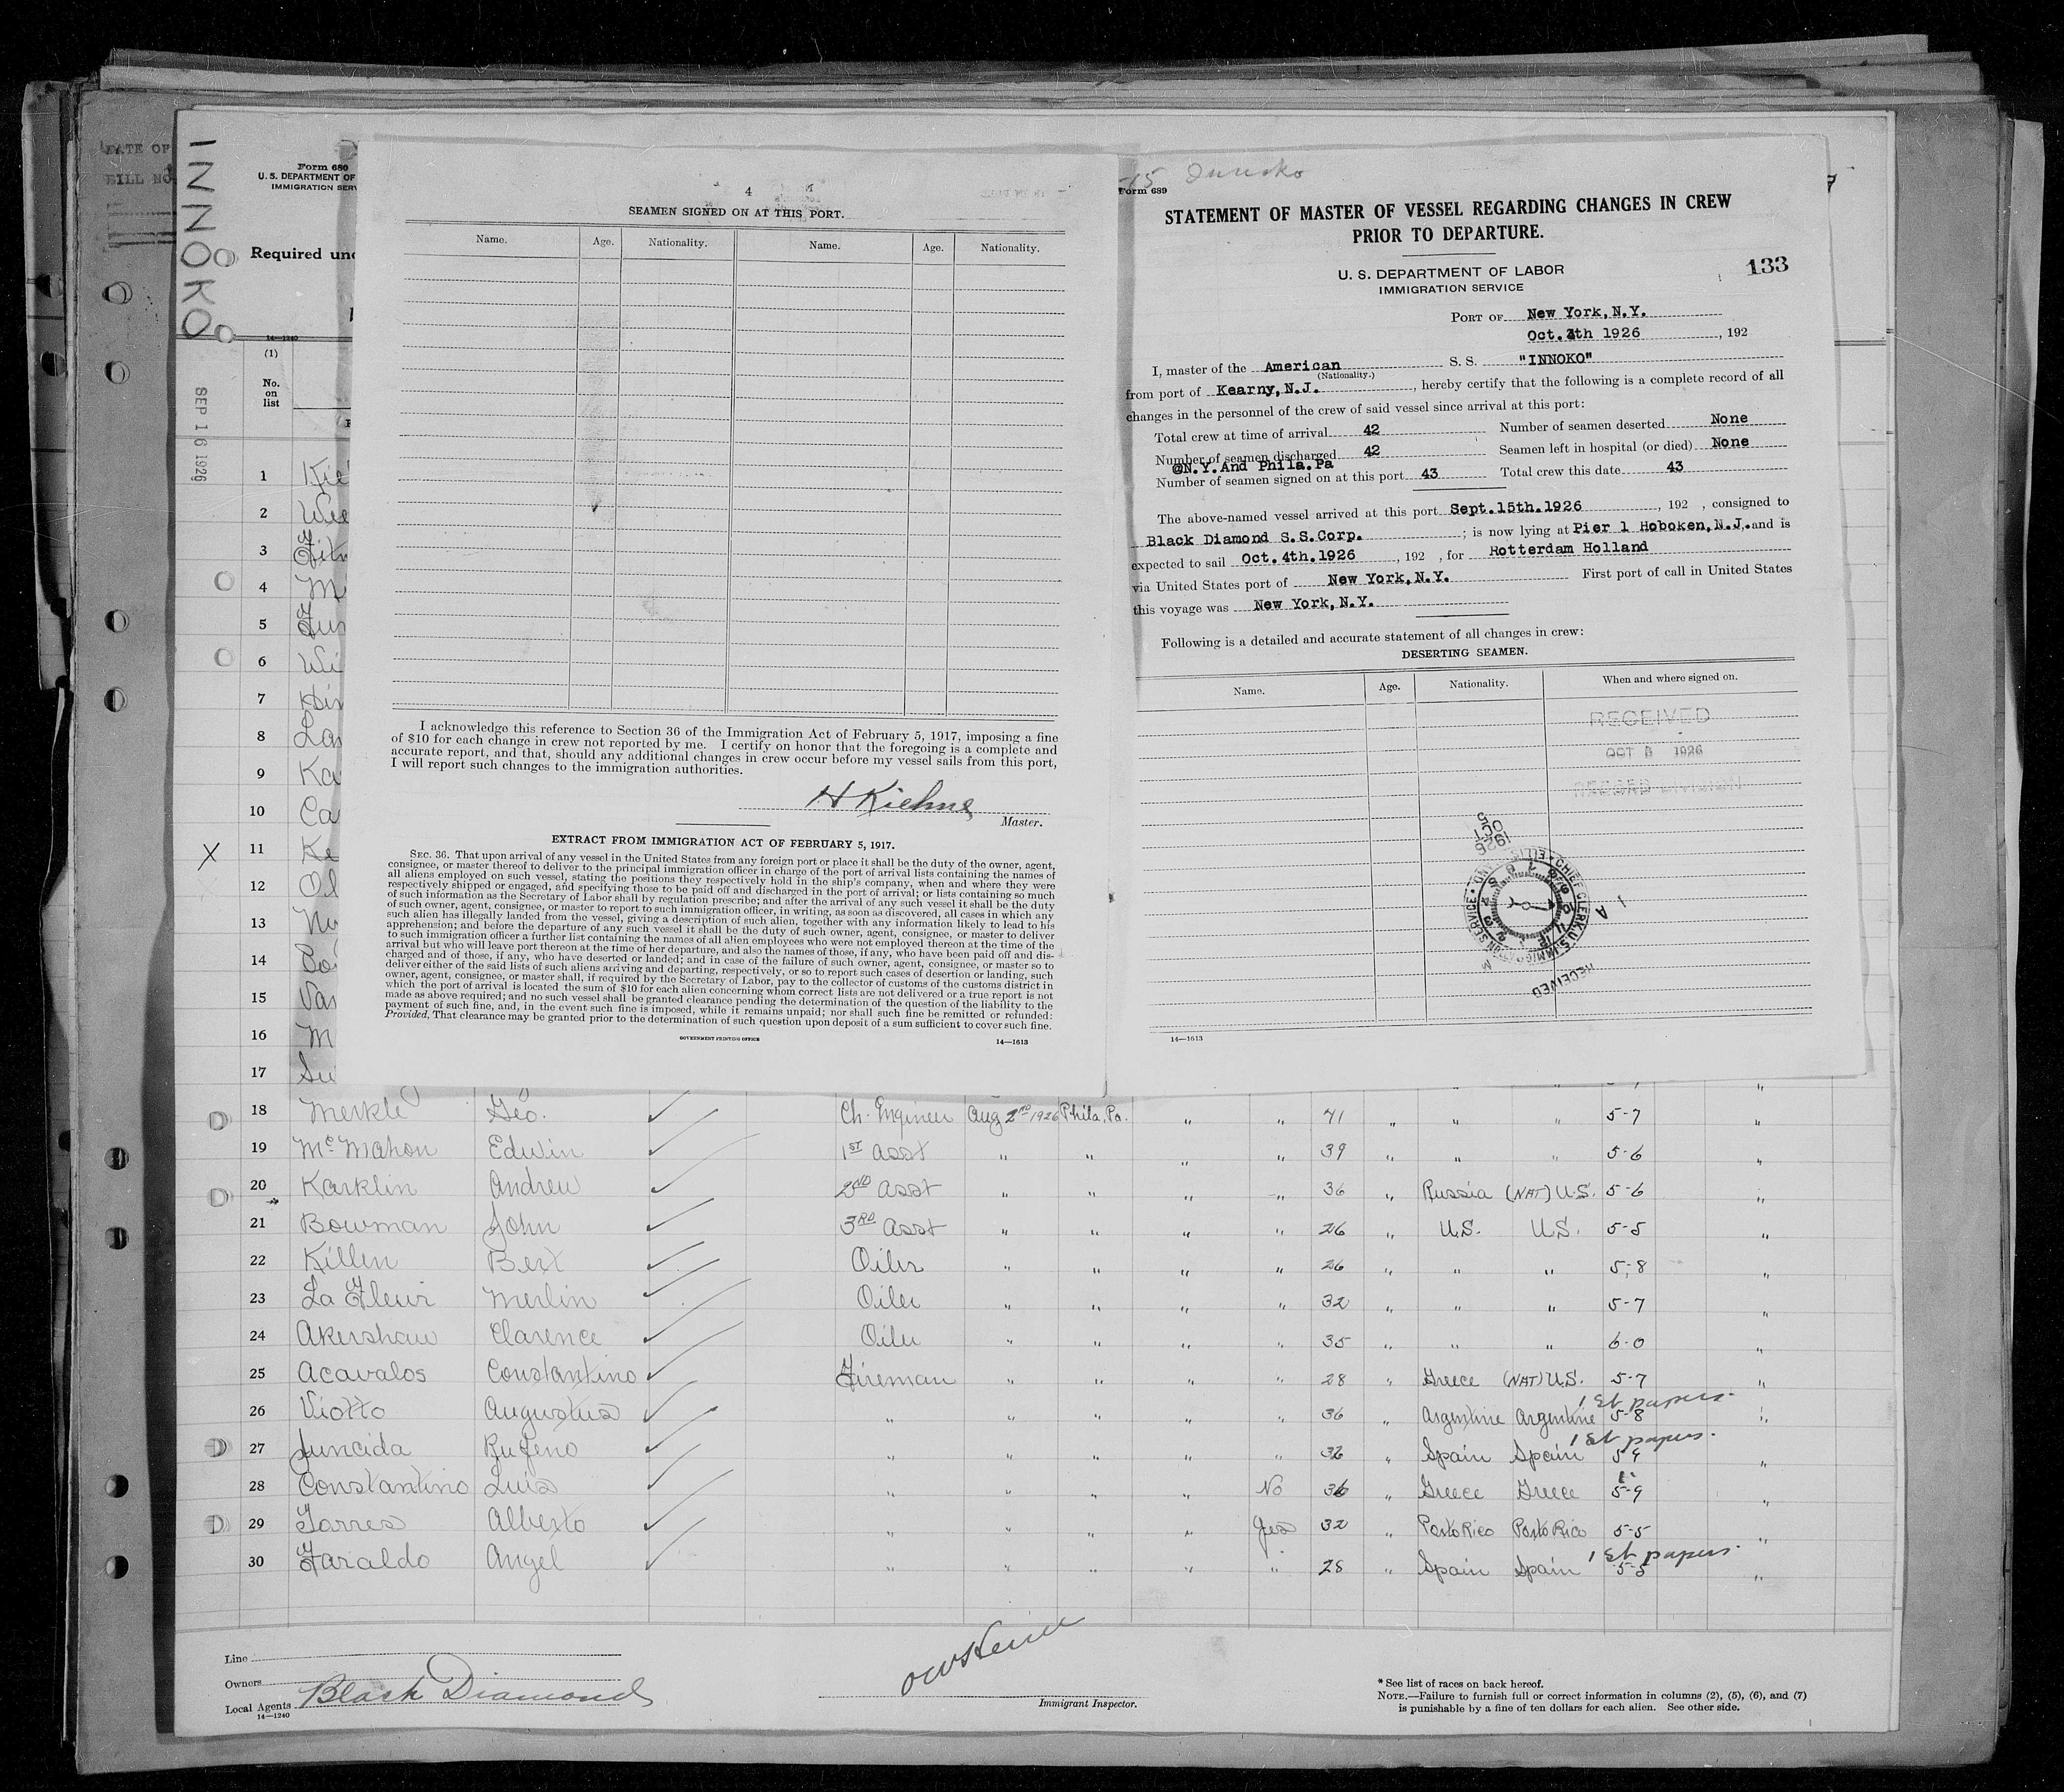 DATE OF
BILL NO.
INNOKO
SEP 16 1926
Form 680
U. S. DEPARTMENT OF
IMMIGRATION SERV
Required und
14—1240
(1)
No.
on
list
1 Kie
2 Wie
3 Fitz
4 M
5 Fur
6 Wi
7 Hin
8 Lar
9 Ka
10 Ca
X 11 Ke
12 Ol
13
14
15 Var
16 M
17 Su
4
SEAMEN SIGNED ON AT THIS PORT.
Name. Age. Nationality. Name. Age. Nationality.
I acknowledge this reference to Section 36 of the Immigration Act of February 5, 1917, imposing a fine
of $10 for each change in crew not reported by me. I certify on honor that the foregoing is a complete and
accurate report, and that, should any additional changes in crew occur before my vessel sails from this port,
I will report such changes to the immigration authorities.
H Kiehne
Master.
EXTRACT FROM IMMIGRATION ACT OF FEBRUARY 5, 1917.
SEC. 36. That upon arrival of any vessel in the United States from any foreign port or place it shall be the duty of the owner, agent,
consignee, or master thereof to deliver to the principal immigration officer in charge of the port of arrival lists containing the names of
all aliens employed on such vessel, stating the positions they respectively hold in the ship's company, when and where they were
respectively shipped or engaged, and specifying those to be paid off and discharged in the port of arrival; or lists containing so much
of such information as the Secretary of Labor shall by regulation prescribe; and after the arrival of any such vessel it shall be the duty
of such owner, agent, consignee, or master to report to such immigration officer, in writing, as soon as discovered, all cases in which any
such alien has illegally landed from the vessel, giving a description of such alien, together with any information likely to lead to his
apprehension; and before the departure of any such vessel it shall be the duty of such owner, agent, consignee, or master to deliver
to such immigration officer a further list containing the names of all alien employees who were not employed thereon at the time of the
arrival but who will leave port thereon at the time of her departure, and also the names of those, if any, who have been paid off and dis-
charged and of those, if any, who have deserted or landed; and in case of the failure of such owner, agent, consignee, or master so to
deliver either of the said lists of such aliens arriving and departing, respectively, or so to report such cases of desertion or landing, such
owner, agent, consignee, or master shall, if required by the Secretary of Labor, pay to the collector of customs of the customs district in
which the port of arrival is located the sum of $10 for each alien concerning whom correct lists are not delivered or a true report is not
made as above required; and no such vessel shall be granted clearance pending the determination of the question of the liability to the
payment of such fine, and, in the event such fine is imposed, while it remains unpaid; nor shall such fine be remitted or refunded:
Provided, That clearance may be granted prior to the determination of such question upon deposit of a sum sufficient to cover such fine.
GOVERNMENT PRINTING OFFICE 14—1613
-15 Innoko
Form 689
STATEMENT OF MASTER OF VESSEL REGARDING CHANGES IN CREW
PRIOR TO DEPARTURE.
U. S. DEPARTMENT OF LABOR
IMMIGRATION SERVICE
133
PORT OF New York, N.Y.
Oct. 4th 1926, 192
I, master of the American S. S. "INNOKO"
(Nationality.)
from port of Kearny, N.J., hereby certify that the following is a complete record of all
changes in the personnel of the crew of said vessel since arrival at this port:
Total crew at time of arrival 42 Number of seamen deserted None
Number of seamen discharged 42 Seamen left in hospital (or died) None
@N.Y. And Phila. Pa
Number of seamen signed on at this port 43 Total crew this date 43
The above-named vessel arrived at this port Sept. 15th. 1926, 192 , consigned to
Black Diamond S.S. Corp. ; is now lying at Pier 1 Hoboken, N.J. and is
expected to sail Oct. 4th. 1926, 192 , for Rotterdam Holland
via United States port of New York, N.Y. First port of call in United States
this voyage was New York, N.Y.
Following is a detailed and accurate statement of all changes in crew:
DESERTING SEAMEN.
Name. Age. Nationality. When and where signed on.
RECEIVED
OCT 6 1926
RECORD DIVISION
1926
OCT
5
CHIEF CLERK, U.S. IMMIGRATION SERVICE • ELLIS ISLAND
RECEIVED
A
M
14—1613
18 Merkle Geo. Ch. Engineer Aug 2nd 1926 Phila, Pa. " " 41 " " " 5-7 "
19 McMahon Edwin 1ST Asst " " " " 39 " " " 5-6 "
20 Karklin Andrew 2ND Asst " " " " 36 " Russia (NAT) U.S. 5-6 "
21 Bowman John 3RD Asst " " " " 26 " U.S. U.S. 5-5 "
22 Killen Bert Oiler " " " " 26 " " " 5-8 "
23 La Fleur Merlin Oiler " " " " 32 " " " 5-7 "
24 Akershaw Clarence Oiler " " " " 35 " " " 6-0 "
25 Acavalos Constantino Fireman " " " " 28 " Greece (NAT) U.S. 5-7 "
1st papers.
26 Viotto Augustus " " " " " 36 " Argentine Argentine 5-8 "
1st papers.
27 Juncida Rufeno " " " " " 32 " Spain Spain 5-9 "
28 Constantino Luis " " " " No 36 " Greece Greece 5-9 "
29 Torres Alberto " " " " Yes 32 " Porto Rico Porto Rico 5-5 "
1st papers.
30 Faraldo Angel " " " " " 28 " Spain Spain 5-5 "
Line
Owners
Local Agents Black Diamond
14—1240
Immigrant Inspector.
* See list of races on back hereof.
NOTE.—Failure to furnish full or correct information in columns (2), (5), (6), and (7)
is punishable by a fine of ten dollars for each alien. See other side.